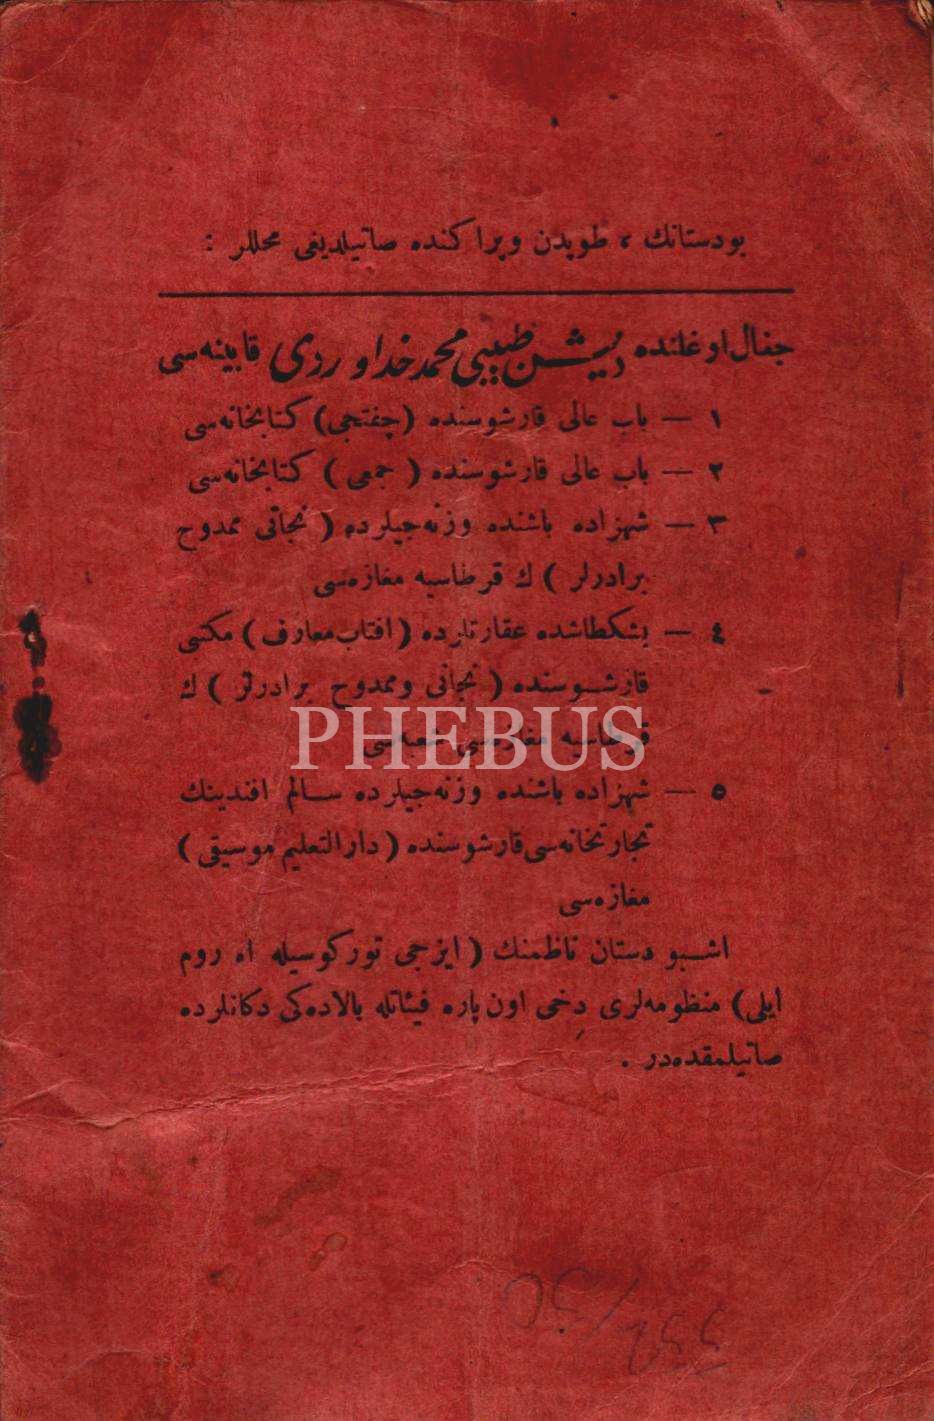 بودستانك ، طوپدن وپراكنده صاتیلدیغی محللر :
جغال اوغلنده دیش طبیبی محمد خداوردی قابینه‌سی
١ — باب عالی قارشوسنده (چفتجی) كتابخانه‌سی
٢ — باب عالی قارشوسنده ( جمعی ) كتابخانه‌سی
٣ — شهزاده باشنده وزنه‌جیلرده ( نجاتی ممدوح
برادرلر ) ك قرطاسیه مغازه‌سی
٤ — بشكطاشده عقارتلرده (افتاب معارف ) مكتبی
قارشــوسنده ( نجاتی وممدوح برادرلر ) ك
قرطاسیه مغازه‌سی شعبه‌سی
PHEBUS
٥ — شهزاده باشنده وزنه‌جیلرده ســالم افندینك
تجارتخانه‌سی قارشوسنده ( دارالتعلیم موسیقی )
مغازه‌سی
اشــبو دستان ناظمنك ( ایزجی توركوسیله اه روم
ایلی) منظومه‌لری دخی اون پاره فیئاتله بالاده‌كی دكانلرده
صاتیلمقده‌در .